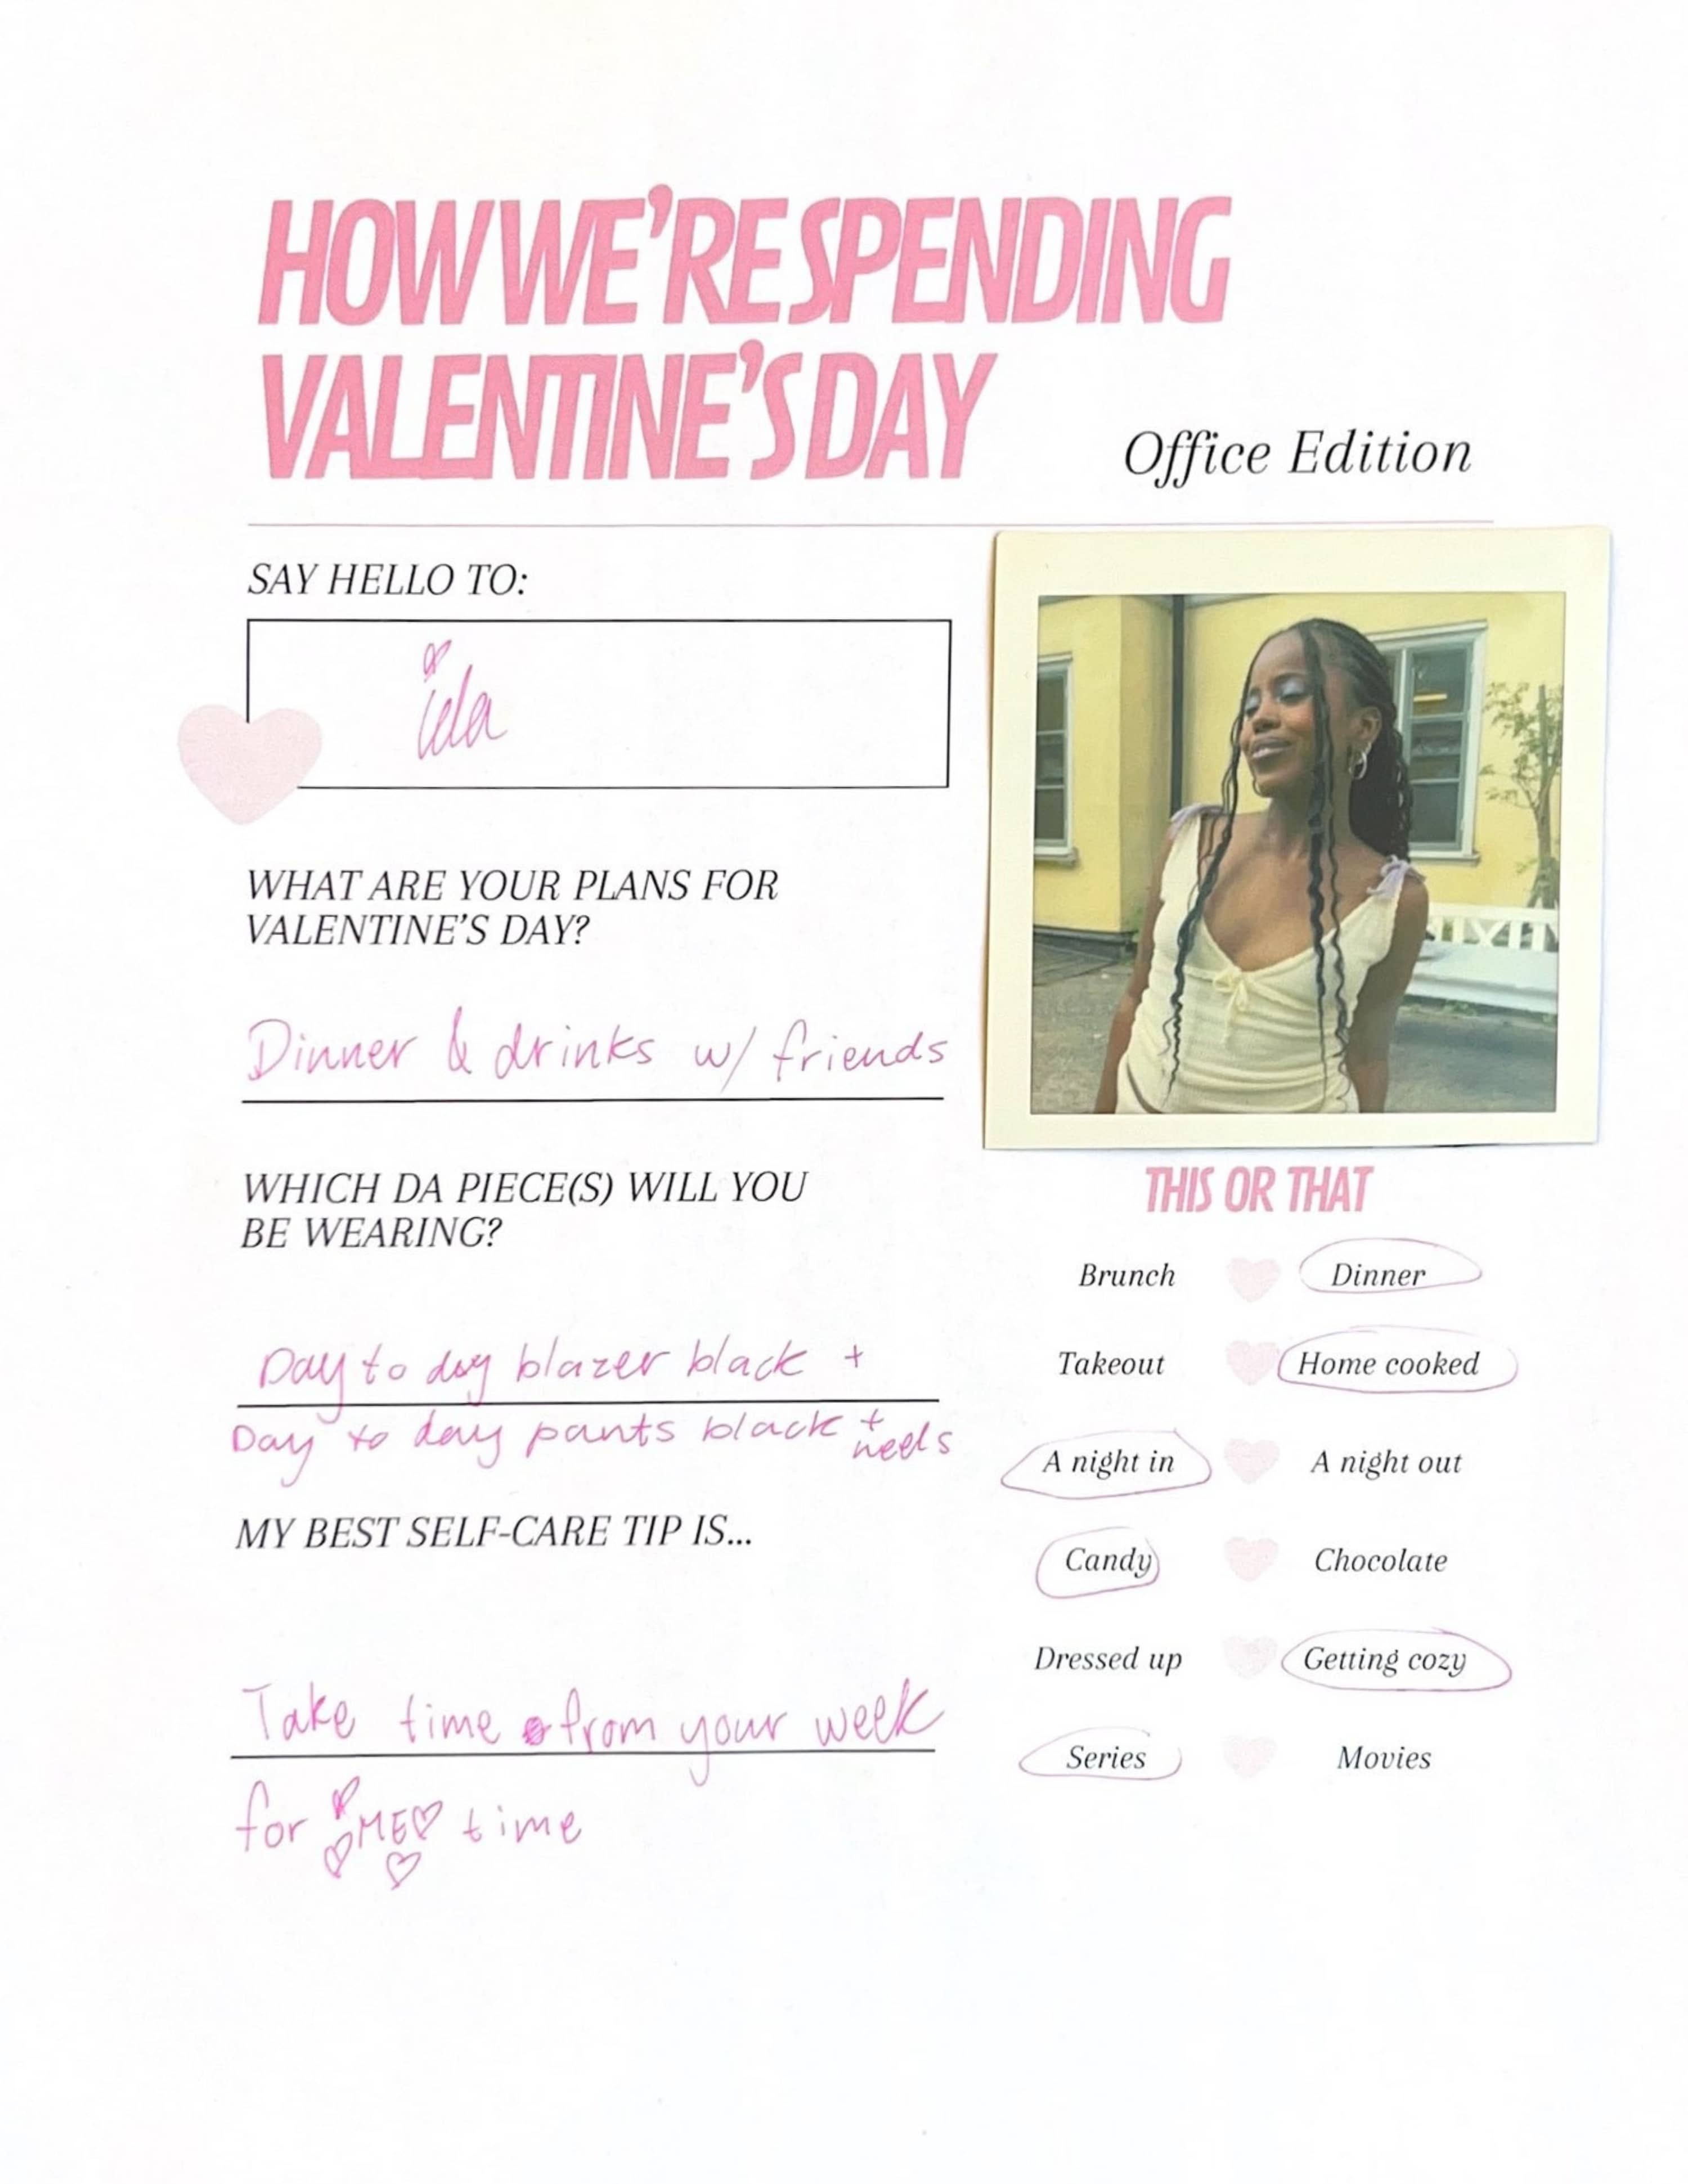 HOW WE'RE SPENDING
VALENTINE'S DAY
Office Edition
SAY HELLO TO:
ida
WHAT ARE YOUR PLANS FOR
VALENTINE'S DAY?
Dinner & drinks w/ friends
WHICH DA PIECE(S) WILL YOU
BE WEARING?
Day to day blazer black +
Day to day pants black +
heels
MY BEST SELF-CARE TIP IS...
Take time from your week
for ME time
THIS OR THAT
Brunch Dinner
Takeout Home cooked
A night in A night out
Candy Chocolate
Dressed up Getting cozy
Series Movies